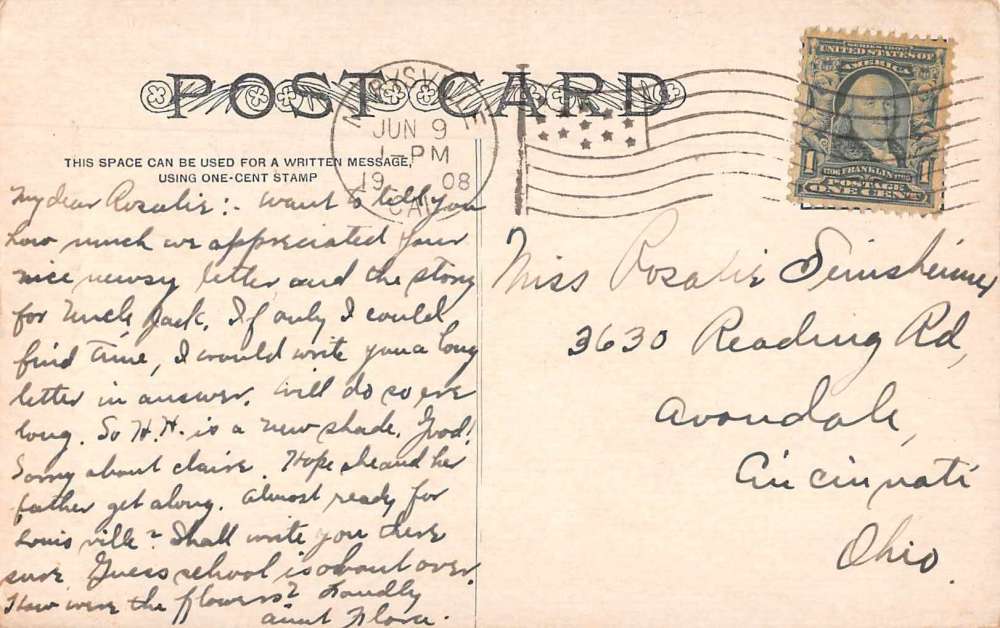 POST CARD
MARYSVILLE
JUN 9
1-PM
1908
CAL
SERIES 1902
UNITED STATES OF
AMERICA
1 1
1706 FRANKLIN 1790
POSTAGE
ONE CENT
THIS SPACE CAN BE USED FOR A WRITTEN MESSAGE,
USING ONE-CENT STAMP
My dear Rosalie:- Want to tell you
how much we appreciated your
nice newsy letter and the story
for Uncle Jack. If only I could
find time, I would write you a long
letter in answer. Will do so ere
long. So H.H. is a new shade. Good!
Sorry about Claire. Hope she and her
father get along. Almost ready for
Louisville? Shall write you there
sure. Guess school is about over.
How were the flowers? Fondly
Aunt Flora.
Miss Rosalie Seinsheimer
3630 Reading Rd,
Avondale,
Cincinnati
Ohio.